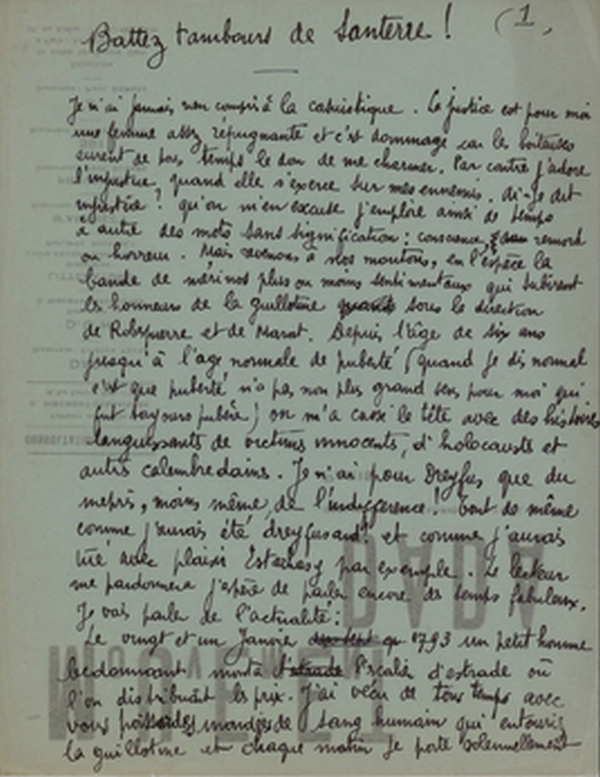 Battez tambours de Santerre ! (1)
Je n'ai jamais rien compris à la casuistique. La justice est pour moi
une femme assez répugnante et c'est dommage car les boiteuses
eurent de tous temps le don de me charmer. Par contre j'adore
l'injustice, quand elle s'exerce sur mes ennemis. Ai-je dit
injustice ? qu'on m'en excuse j'emploie ainsi de temps
à autre des mots sans signification : conscience, remord
ou horreur. Mais revenons à nos moutons, en l'espèce la
bande de mérinos plus ou moins sentimentaux qui subirent
les honneurs de la guillotine sous la direction
de Robespierre et de Marat. Depuis l'âge de six ans
jusqu'à l'age normale de puberté (quand je dis normal
c'est que puberté n'a pas non plus grand sens pour moi qui
fut toujours pubère) on m'a cassé la tête avec des histoires
languissants de victimes innocents, d'holocausts et
autres calembredaines. Je n'ai pour Dreyfus que du
mepris, moins même, de l'indifférence ! tout de même
comme j'aurais été dreyfusard ! et comme j'aurais
tué avec plaisir Esterhazy par exemple. Le lecteur
me pardonnera j'espère de parler encore des temps fabuleux.
Je vais parler de l'actualité :
Le vingt et un Janvier 1793 un petit homme
bedonnant monta l'escalier d'estrade où
l'on distribuait les prix. J'ai vécu de tous temps avec
vous poissardes de sang humain qui entouriez
la guillotine et chaque matin je porte solennellement
DADA
MOUVEMENT